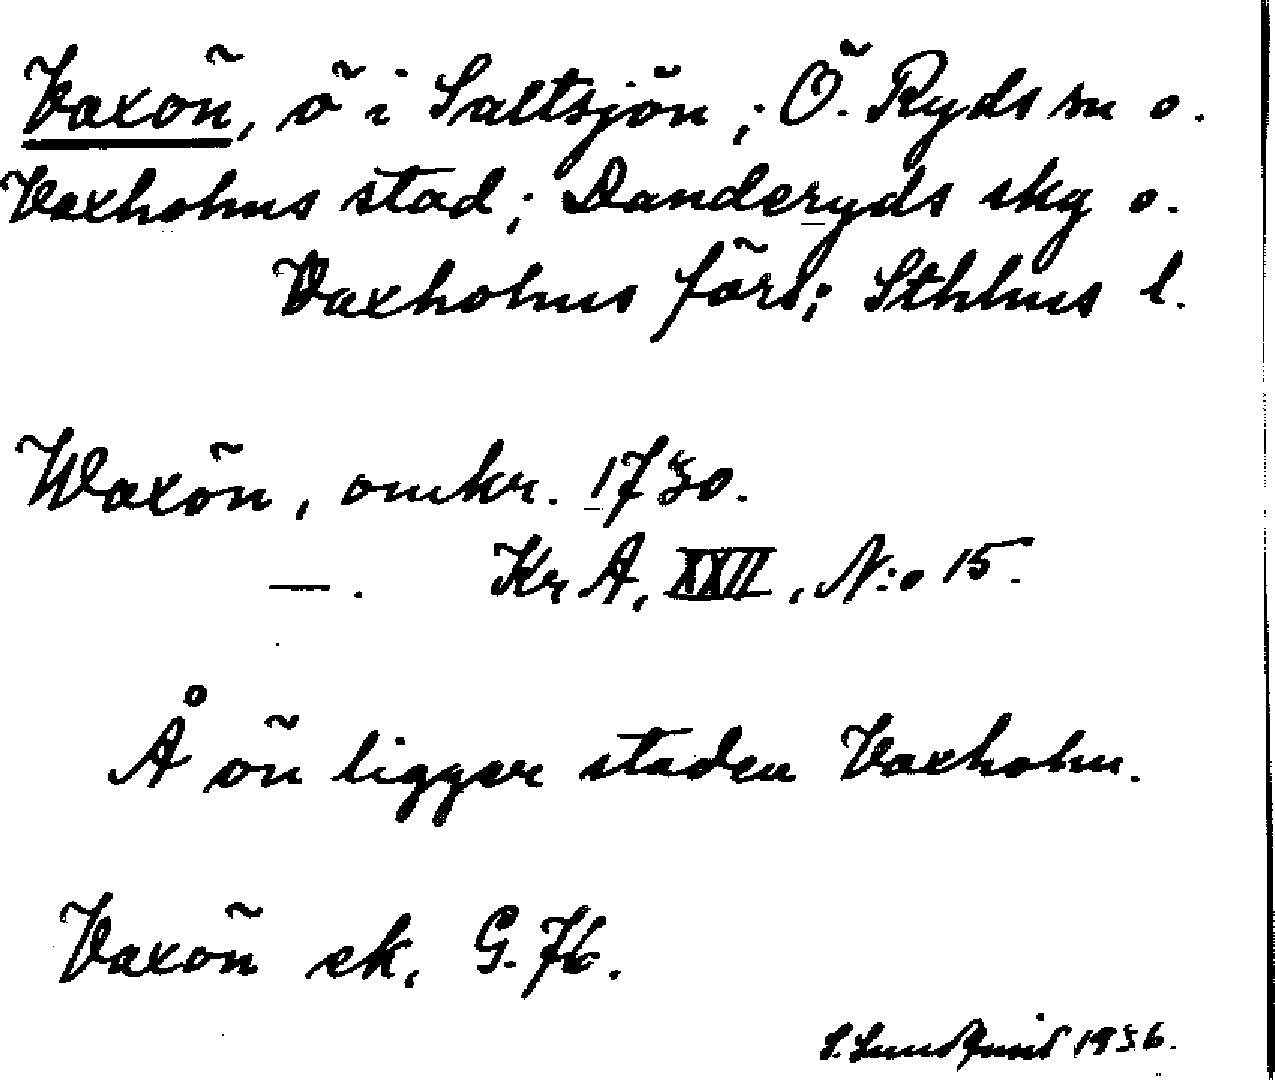 Vaxön, ö i Saltsjön; Ö. Ryds sn o.
Vaxholms stad; Danderyds skg o.
Vaxholms förs; Sthlms l.
Waxön, omkr. 1730.
—. Kr A, XXII, N:o 15.
Å ön ligger staden Vaxholm.
Vaxön ek. G. K.
S. Lundquist 1936.